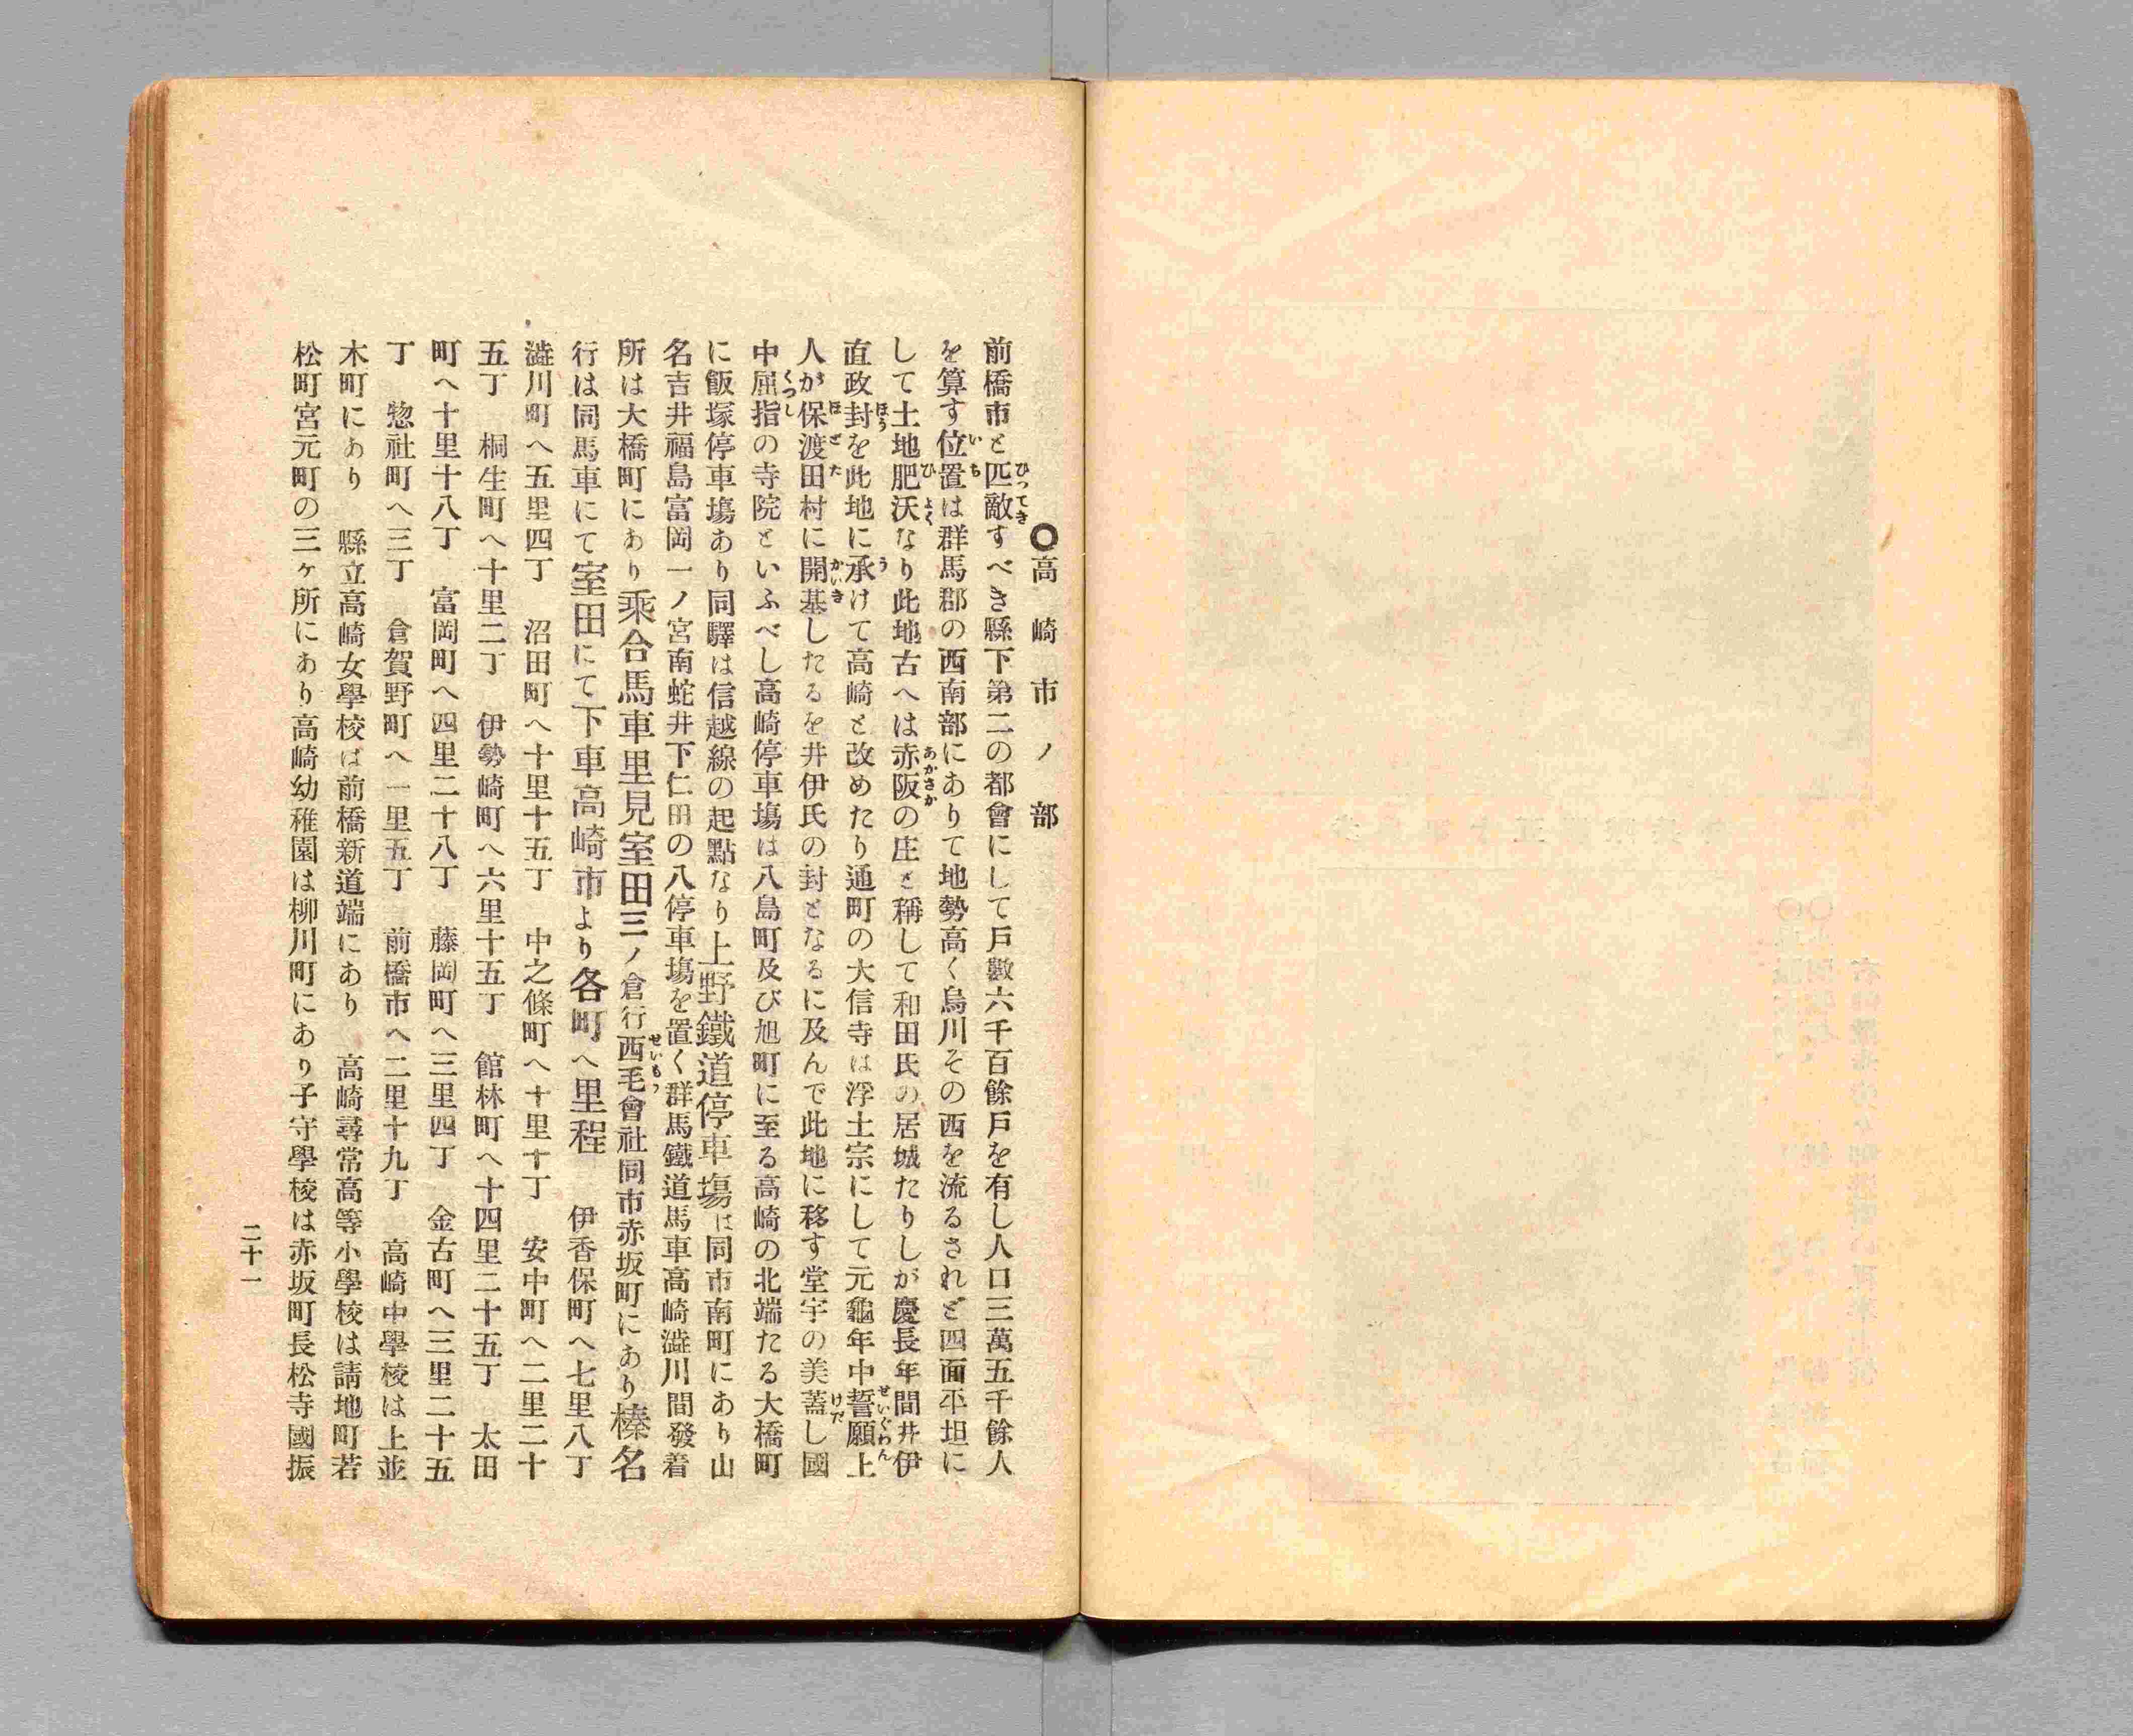 〇高崎市ノ部
前橋市と匹敵すべき縣下第二の都會にして戸數六千百餘戸を有し人口三萬五千餘人
を算す位置は群馬郡の西南部にありて地勢高く烏川その西を流るされど四面平坦に
して土地肥沃なり此地古へは赤阪の庄と稱して和田氏の居城たりしが慶長年間井伊
直政封を此地に承けて高崎と改めたり通町の大信寺は浮土宗にして元龜年中誓願上
人が保渡田村に開基したるを井伊氏の封となるに及んで此地に移す堂宇の美蓋し國
中屈指の寺院といふべし高崎停車塲は八島町及び旭町に至る高崎の北端たる大橋町
に飯塚停車塲あり同驛は信越線の起點なり上野鐵道停車塲は同市南町にあり山
名吉井福島富岡一ノ宮南蛇井下仁田の八停車塲を置く群馬鐵道馬車高崎澁川間發着
所は大橋町にあり乘合馬車里見室田三ノ倉行西毛會社同市赤坂町にあり榛名
行は同馬車にて室田にて下車高崎市より各町へ里程　伊香保町へ七里八丁
澁川町へ五里四丁　沼田町へ十里十五丁　中之條町へ十里十丁　安中町へ二里二十
五丁　桐生町へ十里二丁　伊勢崎町へ六里十五丁　館林町へ十四里二十五丁　太田
町へ十里十八丁　富岡町へ四里二十八丁　藤岡町へ三里四丁　金古町へ三里二十五
丁　惣社町へ三丁　倉賀野町へ一里五丁　前橋市へ二里十九丁　高崎中學校は上並
木町にあり　縣立高崎女學校は前橋新道端にあり　高崎尋常高等小學校は請地町若
松町宮元町の三ヶ所にあり高崎幼稚園は柳川町にあり子守學校は赤坂町長松寺國振
二十一